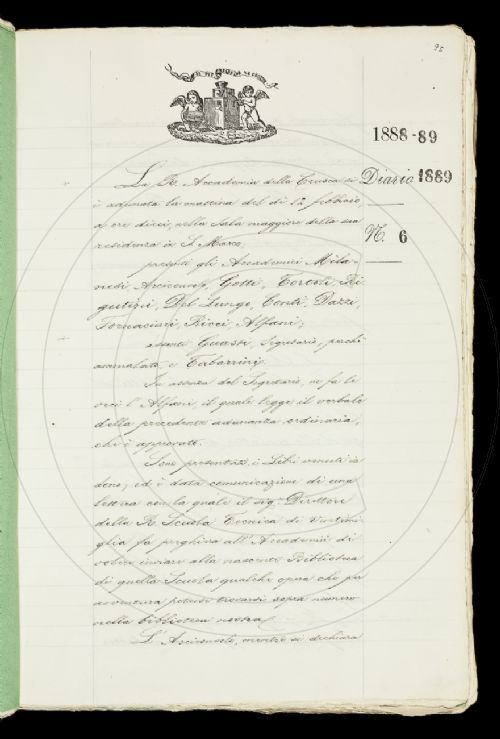 95
1888-89
Diario 1889
N. 6
La R. Accademia della Crusca si
è adunata la mattina del dì 12 febbraio
a ore dieci, nella Sala maggiore della sua
residenza in S. Marco,
presenti gli Accademici Mila-
nesi, Arciconsolo, Gotti, Tortoli, Ri-
gutini, Del Lungo, Conti, Dazzi,
Fornaciari, Ricci, Alfani;
assenti Guasti, Segretario, perchè
ammalato, e Tabarrini.
In assenza del Segretario, ne fa le
veci l'Alfani, il quale legge il verbale
della precedente adunanza ordinaria,
che è approvato.
Sono presentati i Libri venuti in
dono; ed è data comunicazione di una
lettera con la quale il sig. Direttore
della R. Scuola Tecnica di Ventimi-
glia fa preghiera all'Accademia di
volere inviare alla nascente Biblioteca
di quella Scuola qualche opera che per
avventura potesse trovarsi sopra numero
nella biblioteca nostra.
L'Arciconsolo, mentre si dichiara